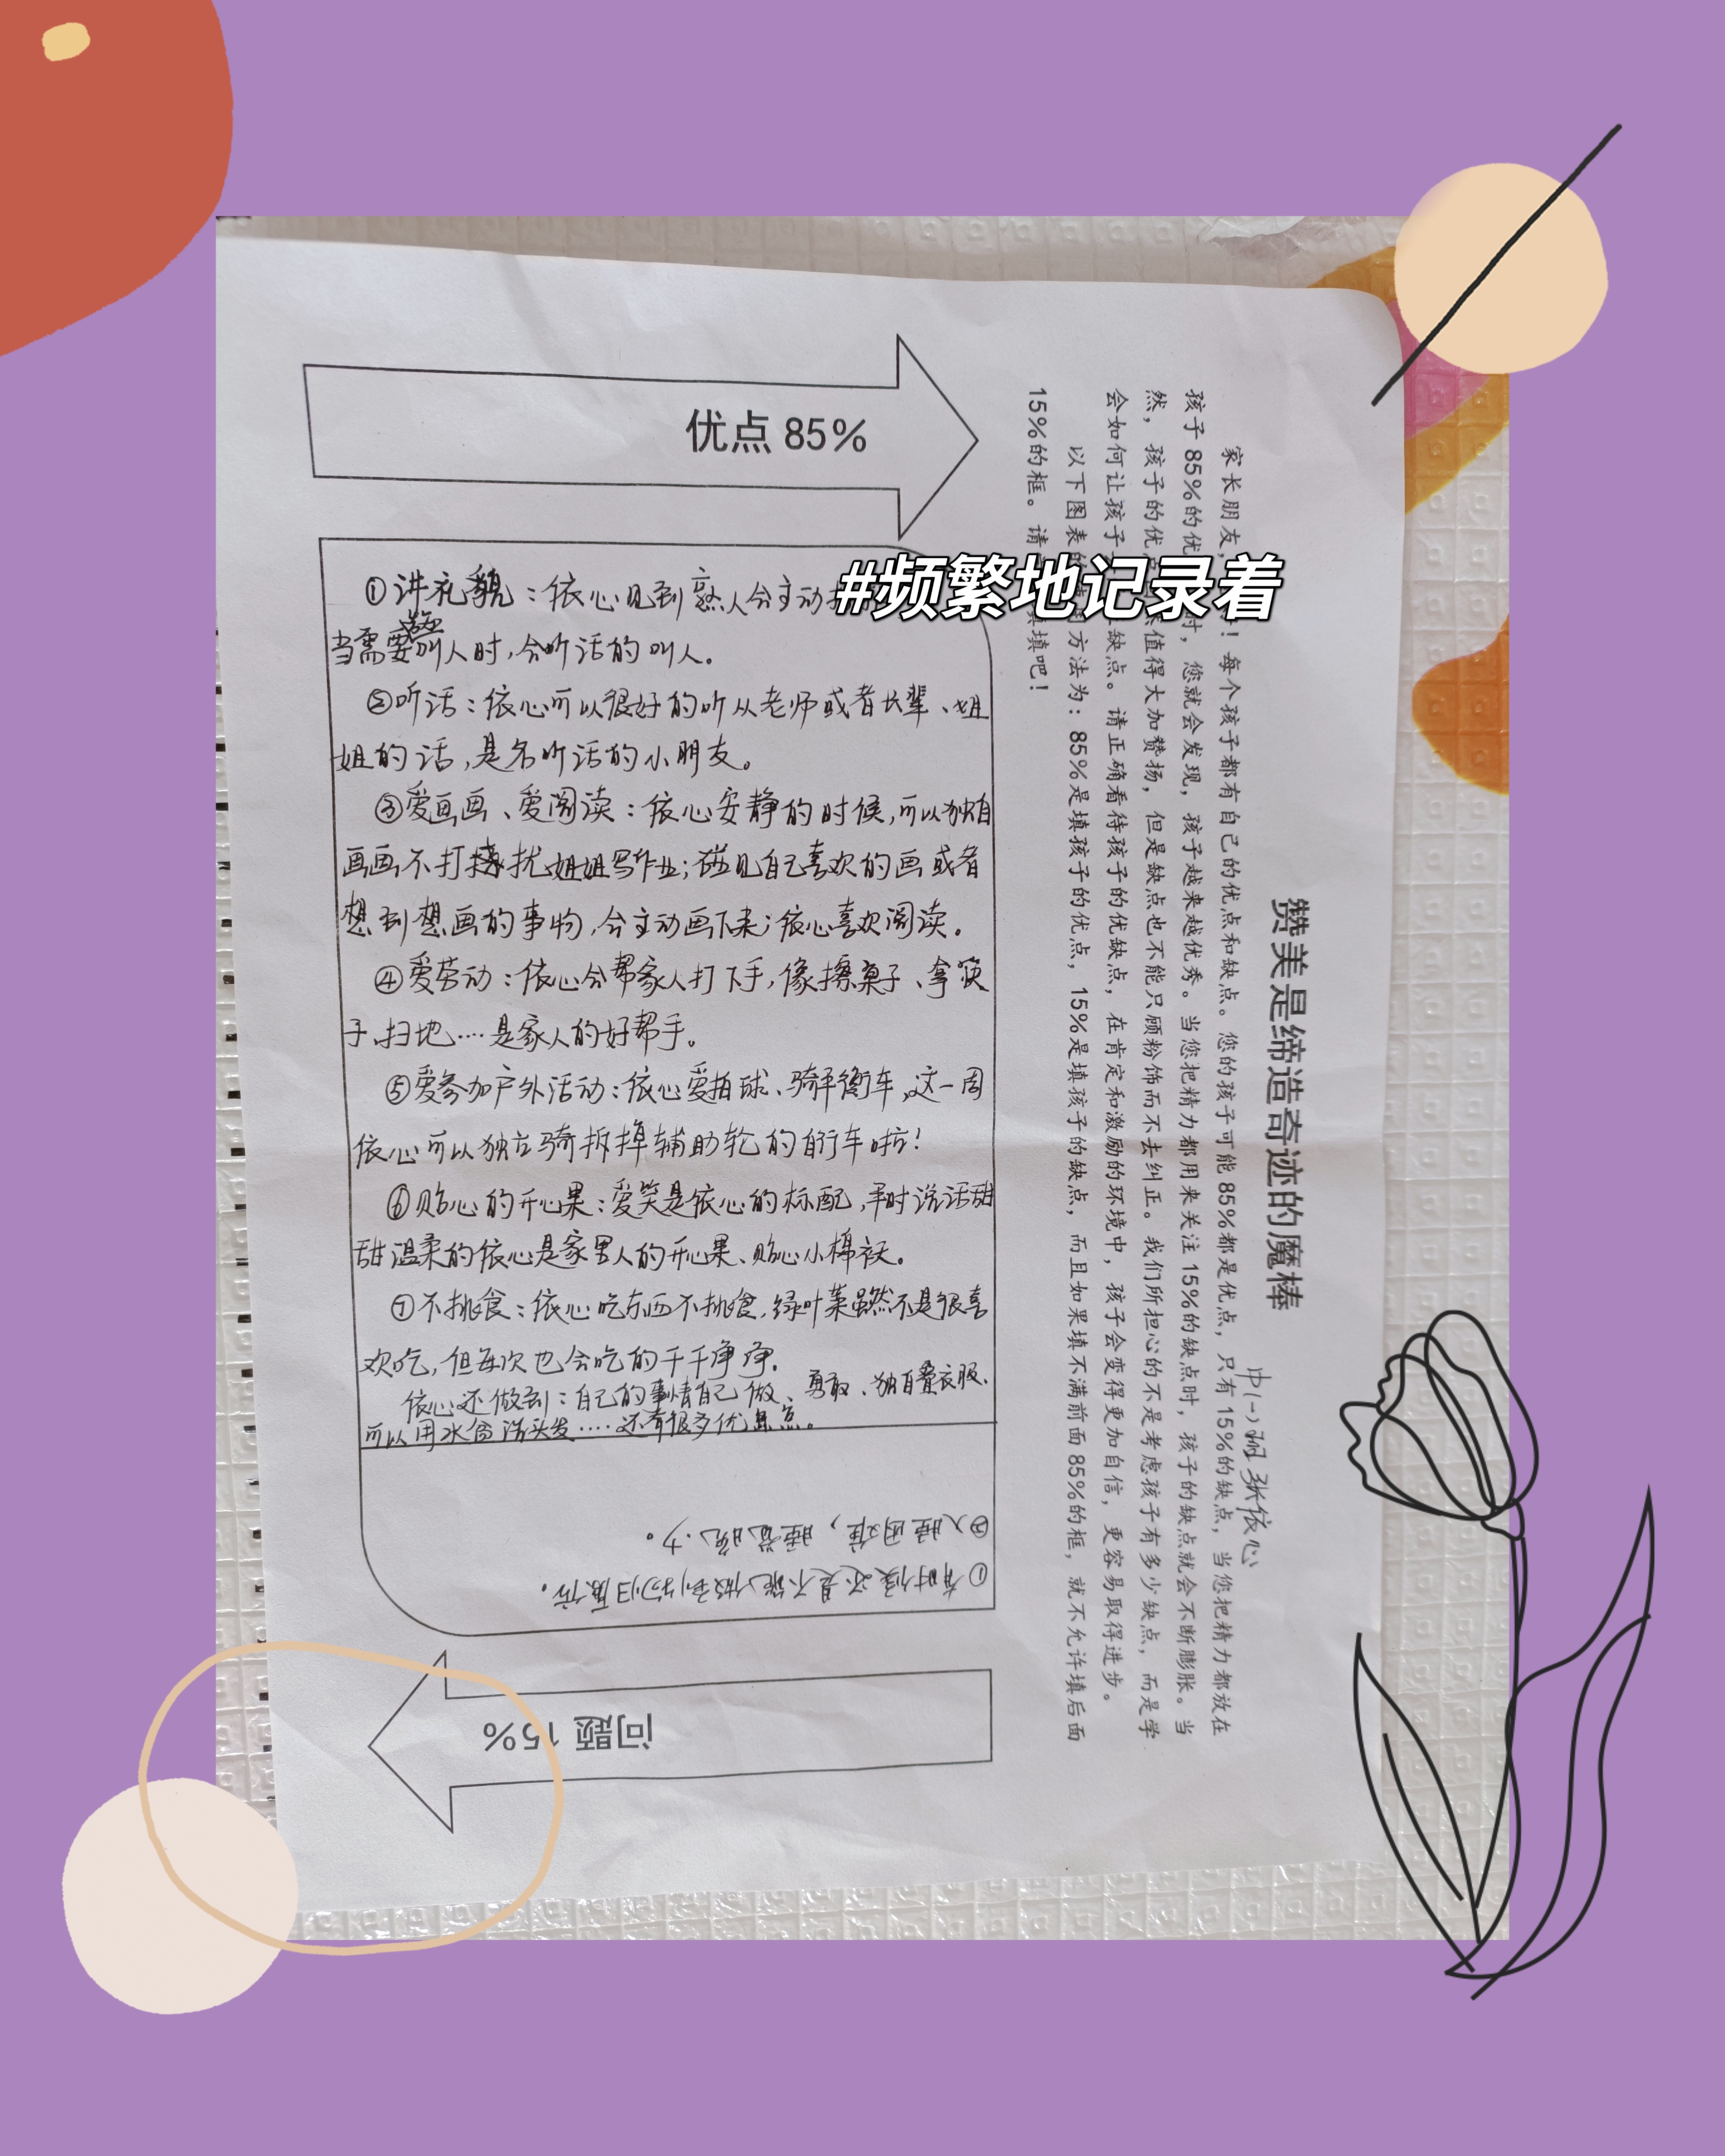 #频繁地记录着
赞美是缔造奇迹的魔棒
中(一)班 张依心
家长朋友,！每个孩子都有自己的优点和缺点。您的孩子可能 85%都是优点，只有 15%的缺点，当您把精力都放在
孩子 85%的优时，您就会发现，孩子越来越优秀。当您把精力都用来关注 15%的缺点时，孩子的缺点就会不断膨胀。当
然，孩子的优值得大加赞扬，但是缺点也不能只顾粉饰而不去纠正。我们所担心的不是考虑孩子有多少缺点，而是学
会如何让孩子缺点。请正确看待孩子的优缺点，在肯定和激励的环境中，孩子会变得更加自信，更容易取得进步。
以下图表的方法为：85%是填孩子的优点，15%是填孩子的缺点，而且如果填不满前面 85%的框，就不允许填后面
15%的框。请填吧！
优点 85%
①讲礼貌：依心见到熟人会主动
当需要别人时,会听话的叫人。
②听话：依心可以很好的听从老师或者长辈、姐
姐的话,是名听话的小朋友。
③爱画画、爱阅读：依心安静的时候,可以独自
画画不打扰姐姐写作业;碰见自己喜欢的画或者
想到想画的事物,会主动画下来;依心喜欢阅读。
④爱劳动：依心会帮家人打下手,像擦桌子、拿筷
子、扫地....是家人的好帮手。
⑤爱参加户外活动：依心爱拍球、骑平衡车,这一周
依心可以独立骑拆掉辅助轮的自行车啦！
⑥贴心的开心果：爱笑是依心的标配,平时说话甜
甜温柔的依心是家里人的开心果、贴心小棉袄。
⑦不挑食：依心吃东西不挑食,绿叶菜虽然不是很喜
欢吃,但每次也会吃的干干净净.
依心还做到：自己的事情自己做、勇敢、独自叠衣服、
可以用水盆洗头发....还有很多优点。
问题 15%
①有时候还是不能做到物归原位.
②入睡困难,睡觉晚.少。